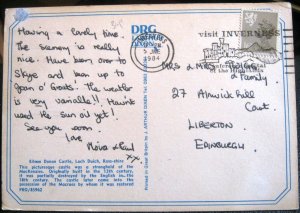 Having a lovely time.
The scenery is really
nice. Have been over to
Skye and been up to
John O' Groats. The weather
is very variable!! Havn't
used the sun oil yet!
See you soon.
Love
Moira
Eilean Donan Castle, Loch Duich, Ross-shire
This picturesque castle was a stronghold of the
MacKenzies. Originally built in the 13th century,
it was partially destroyed by the English in
18th century. The castle later came into the
possession of the Macraes by whom it was restored
PRO/85962
DRG
Printed in Great Britain by J. ARTHUR DIXON
5 JNE
1984
visit INVERNESS
of the Highlands
Mrs & Mrs
& Family
27 Alnwick Hill
Court
LIBERTON
EDINBURGH